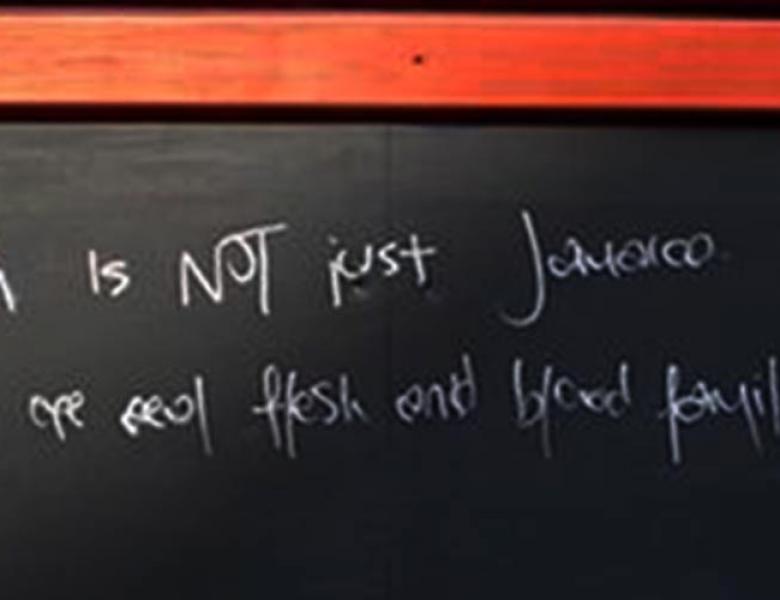 is NOT just Jamaica
are real flesh and blood famil